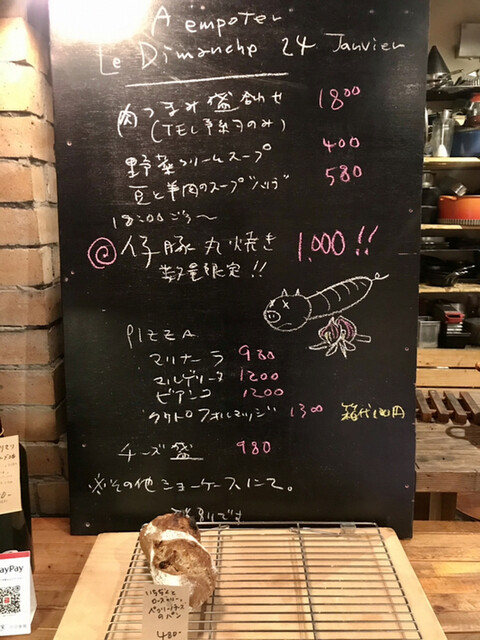 A empoter
Le Dimanche 24 Janvier
肉つまみ盛合わせ 1800
(TEL予約のみ)
野菜クリームスープ 400
豆と羊肉のスープ"ハリラ" 580
18:00ごろ〜
仔豚丸焼き 1,000!!
数量限定!!
PIZZA
マリナーラ 980
マルゲリータ 1200
ビアンコ 1200
クワトロフォルマッジ 1300 箱代100円
チーズ盛 980
※その他ショーケースにて。
いちじくと
ローズマリー、
のパン
480-
PayPay